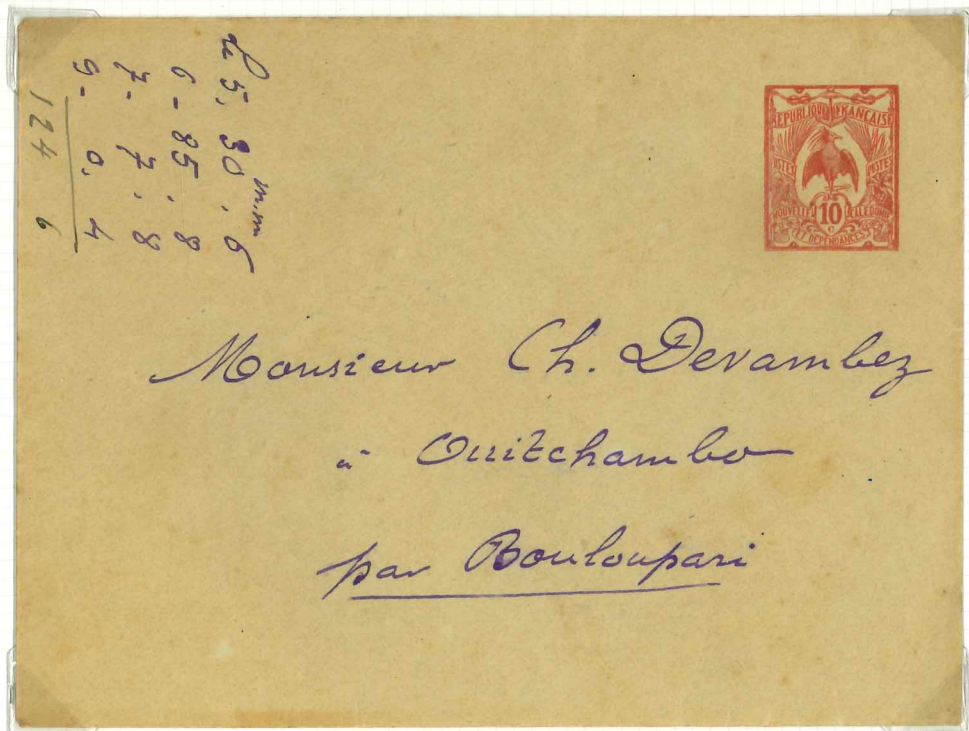 Le 5. 30. 6 m.m
6 - 85. 8
7 - 7. 8
9 - 0. 4
124 6
REPUBLIQUE FRANÇAISE
POSTES POSTES
NOUVELLE 10 CALEDONIE
C
ET DEPENDANCES
Monsieur Ch. Devambez
à Ouitchambo
par Bouloupari